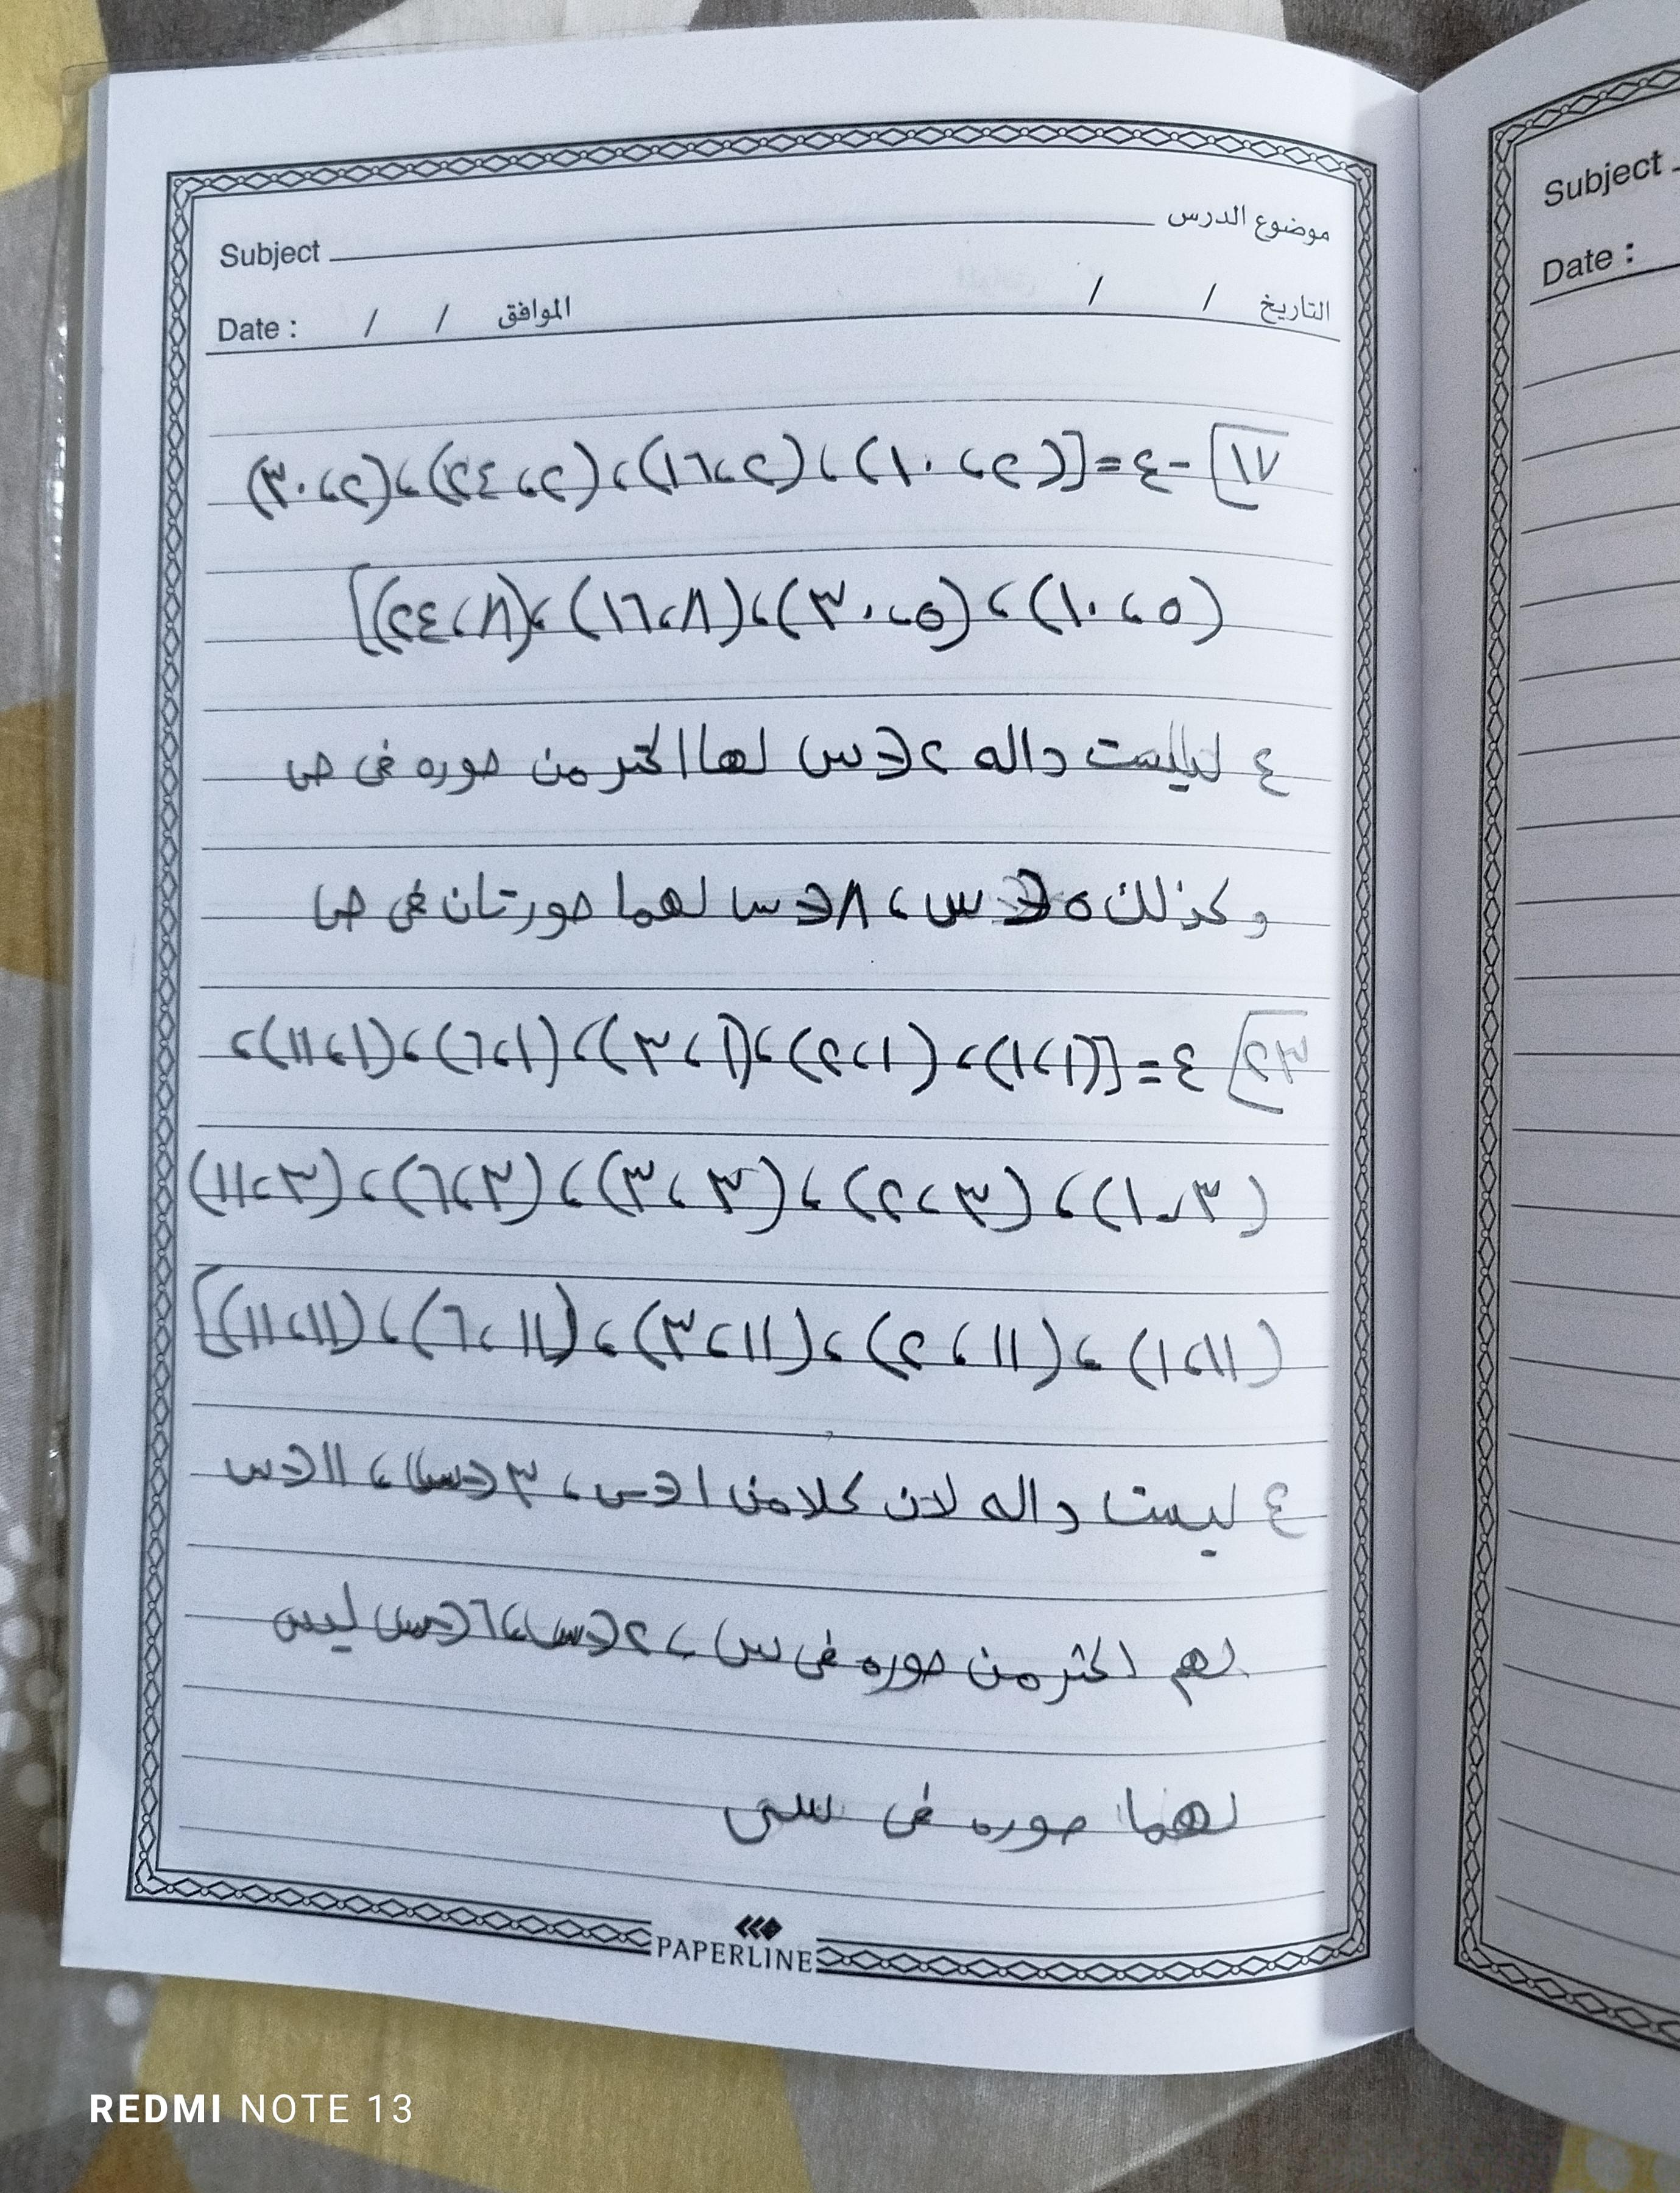 موضوع الدرس
Subject
التاريخ / /
الموافق
Date : / /
١٧] - ع = [(٢، ١٠)، (٢، ١٦)، (٢، ٢٤)، (٢، ٣٠)
(٥، ١٠)، (٥، ٣٠)، (٨، ١٦)، (٨، ٢٤)]
ع ليست داله ٢ ∈ س لها اكثر من صوره في ص
وكذلك ٥ ∈ س، ٨ ∈ س لهما صورتان في ص
٣٢] ع = [(١، ١)، (١، ٢)، (١، ٣)، (١، ٦)، (١، ١١)،
(٣، ١)، (٣، ٢)، (٣، ٣)، (٣، ٦)، (٣، ١١)
(١١، ١)، (١١، ٢)، (١١، ٣)، (١١، ٦)، (١١، ١١)]
ع ليست داله لان كلا من ١ ∈ س، ٣ ∈ س، ١١ ∈ س
لهم اكثر من صوره في س، ٢ ∈ س، ٦ ∈ س ليس
لهما صوره في س
PAPERLINE
Subject
Date :
REDMI NOTE 13